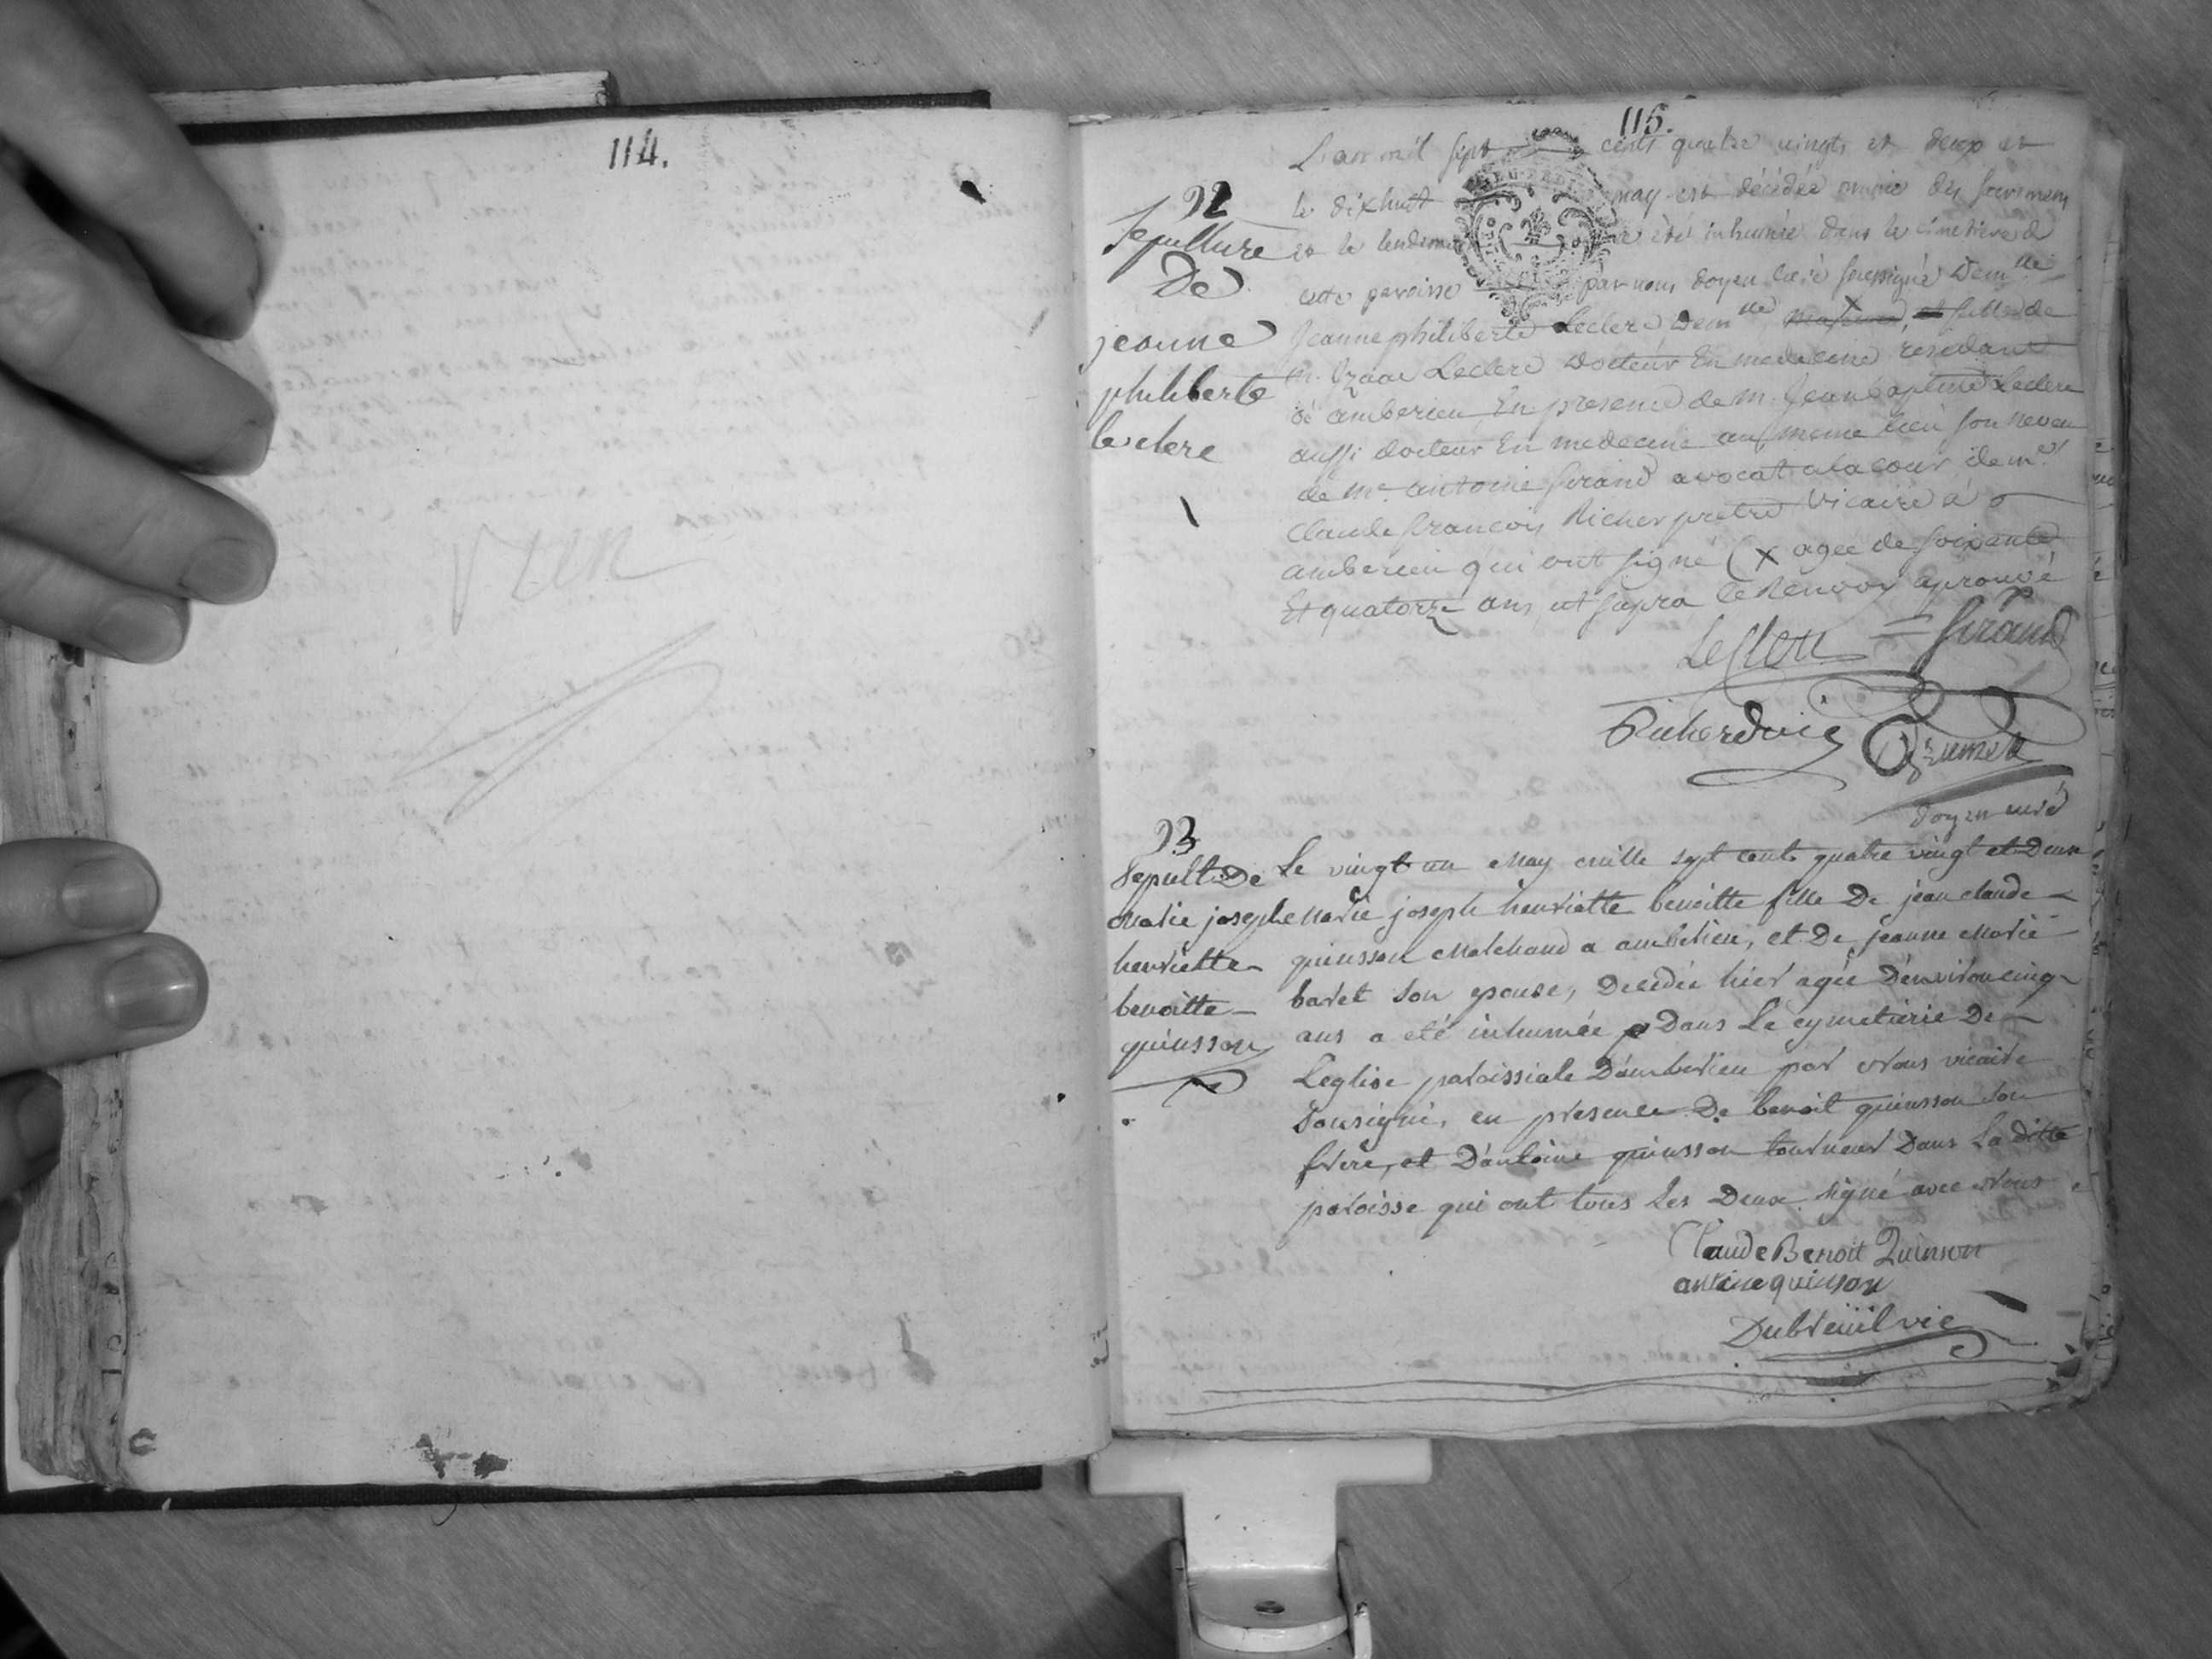 114.
115.
L'an mil sept cents quatre vingts et deux et
le dixhuit may est décédée munie des sacremens
et le lendemain a été inhumée dans le cimetière de
cette paroisse par nous doyen curé soussigné Dem.lle
Jeanne philiberte Leclerc Dem.lle fille de
m. Izaac Leclerc docteur En medecine residant
à amberieu En presence de m. Jean baptiste Leclerc
aussi docteur En medecine au meme lieu son neveu
de me. antoine sirand avocat a la cour de me.
Claude françois Richer pretre vicaire à
amberieu qui ont signé (x agee de soixante
Et quatorze ans, ut supra le Renvoy aprouvé
Leclerc Sirand
Richerd vic
doyen curé
Sepulture
De
jeanne
philiberte
leclerc
rien
93
Sepult. De
Marie joseph
henriette
benoitte
quinsson
Le vingt un May mille sept cents quatre vingt et Deux
Marie joseph henriette benoitte fille De jean claude
quinsson Marchand a amberieu, et De jeanne Marie
baret son epouse, Decedée hier agée D'environ cinq
ans a eté inhumée Dans Le cymetierie De
Leglise paroissiale D'amberieu par Nous vicaire
Sousigné, en presence De benoit quinsson son
frere, et D'antoine quinsson tourneur Dans La ditte
paroisse qui ont tous Les Deux signé avec Nous
Claude Benoit Quinson
antoine quinson
Dubreüil vic